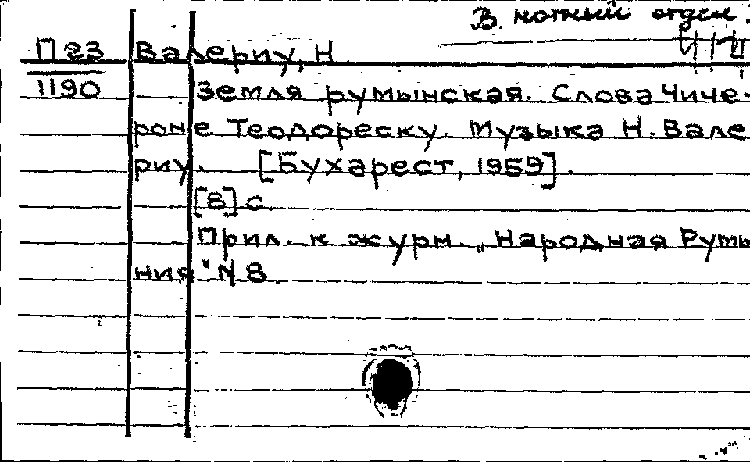 В нотный отдел.
П23 Валериу, Н
1190 Земля румынская. Слова Чиче-
роне Теодореску. Музыка Н. Вале-
риу. [Бухарест, 1959].
[8] с
Прил. к журн. „Народная Румы
ния" N 8